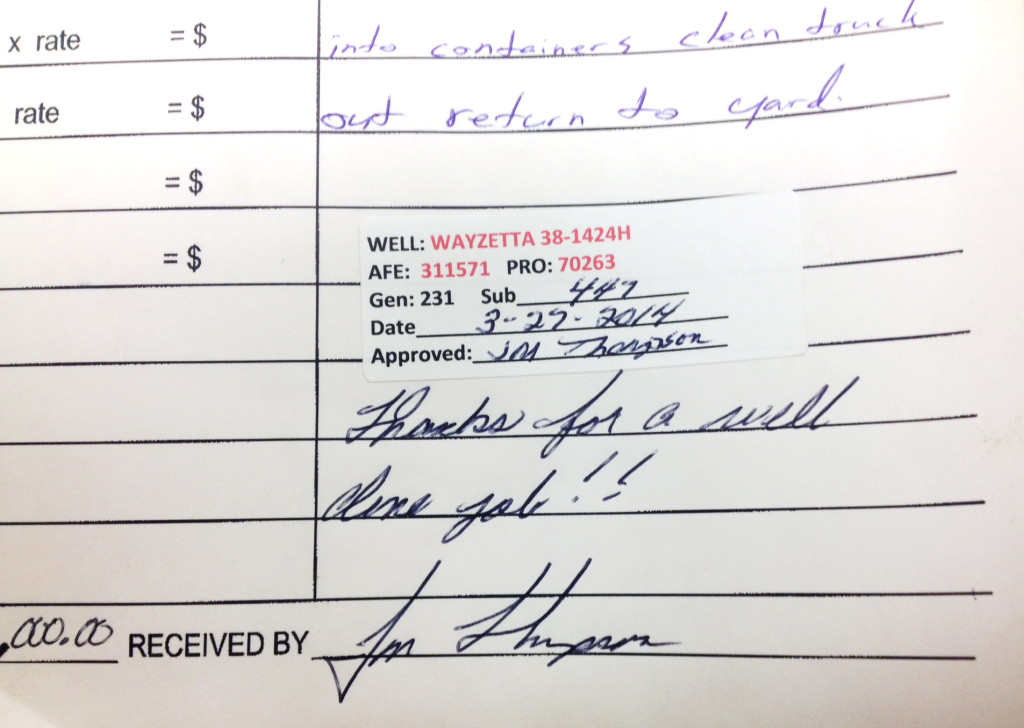 x rate = $ into containers clean truck
rate = $ out return to yard.
= $
= $
WELL: WAYZETTA 38-1424H
AFE: 311571 PRO: 70263
Gen: 231 Sub 447
Date 3-27-2014
Approved: Jim Thompson
Thanks for a well
done job!!
,000.00 RECEIVED BY Jim Thompson